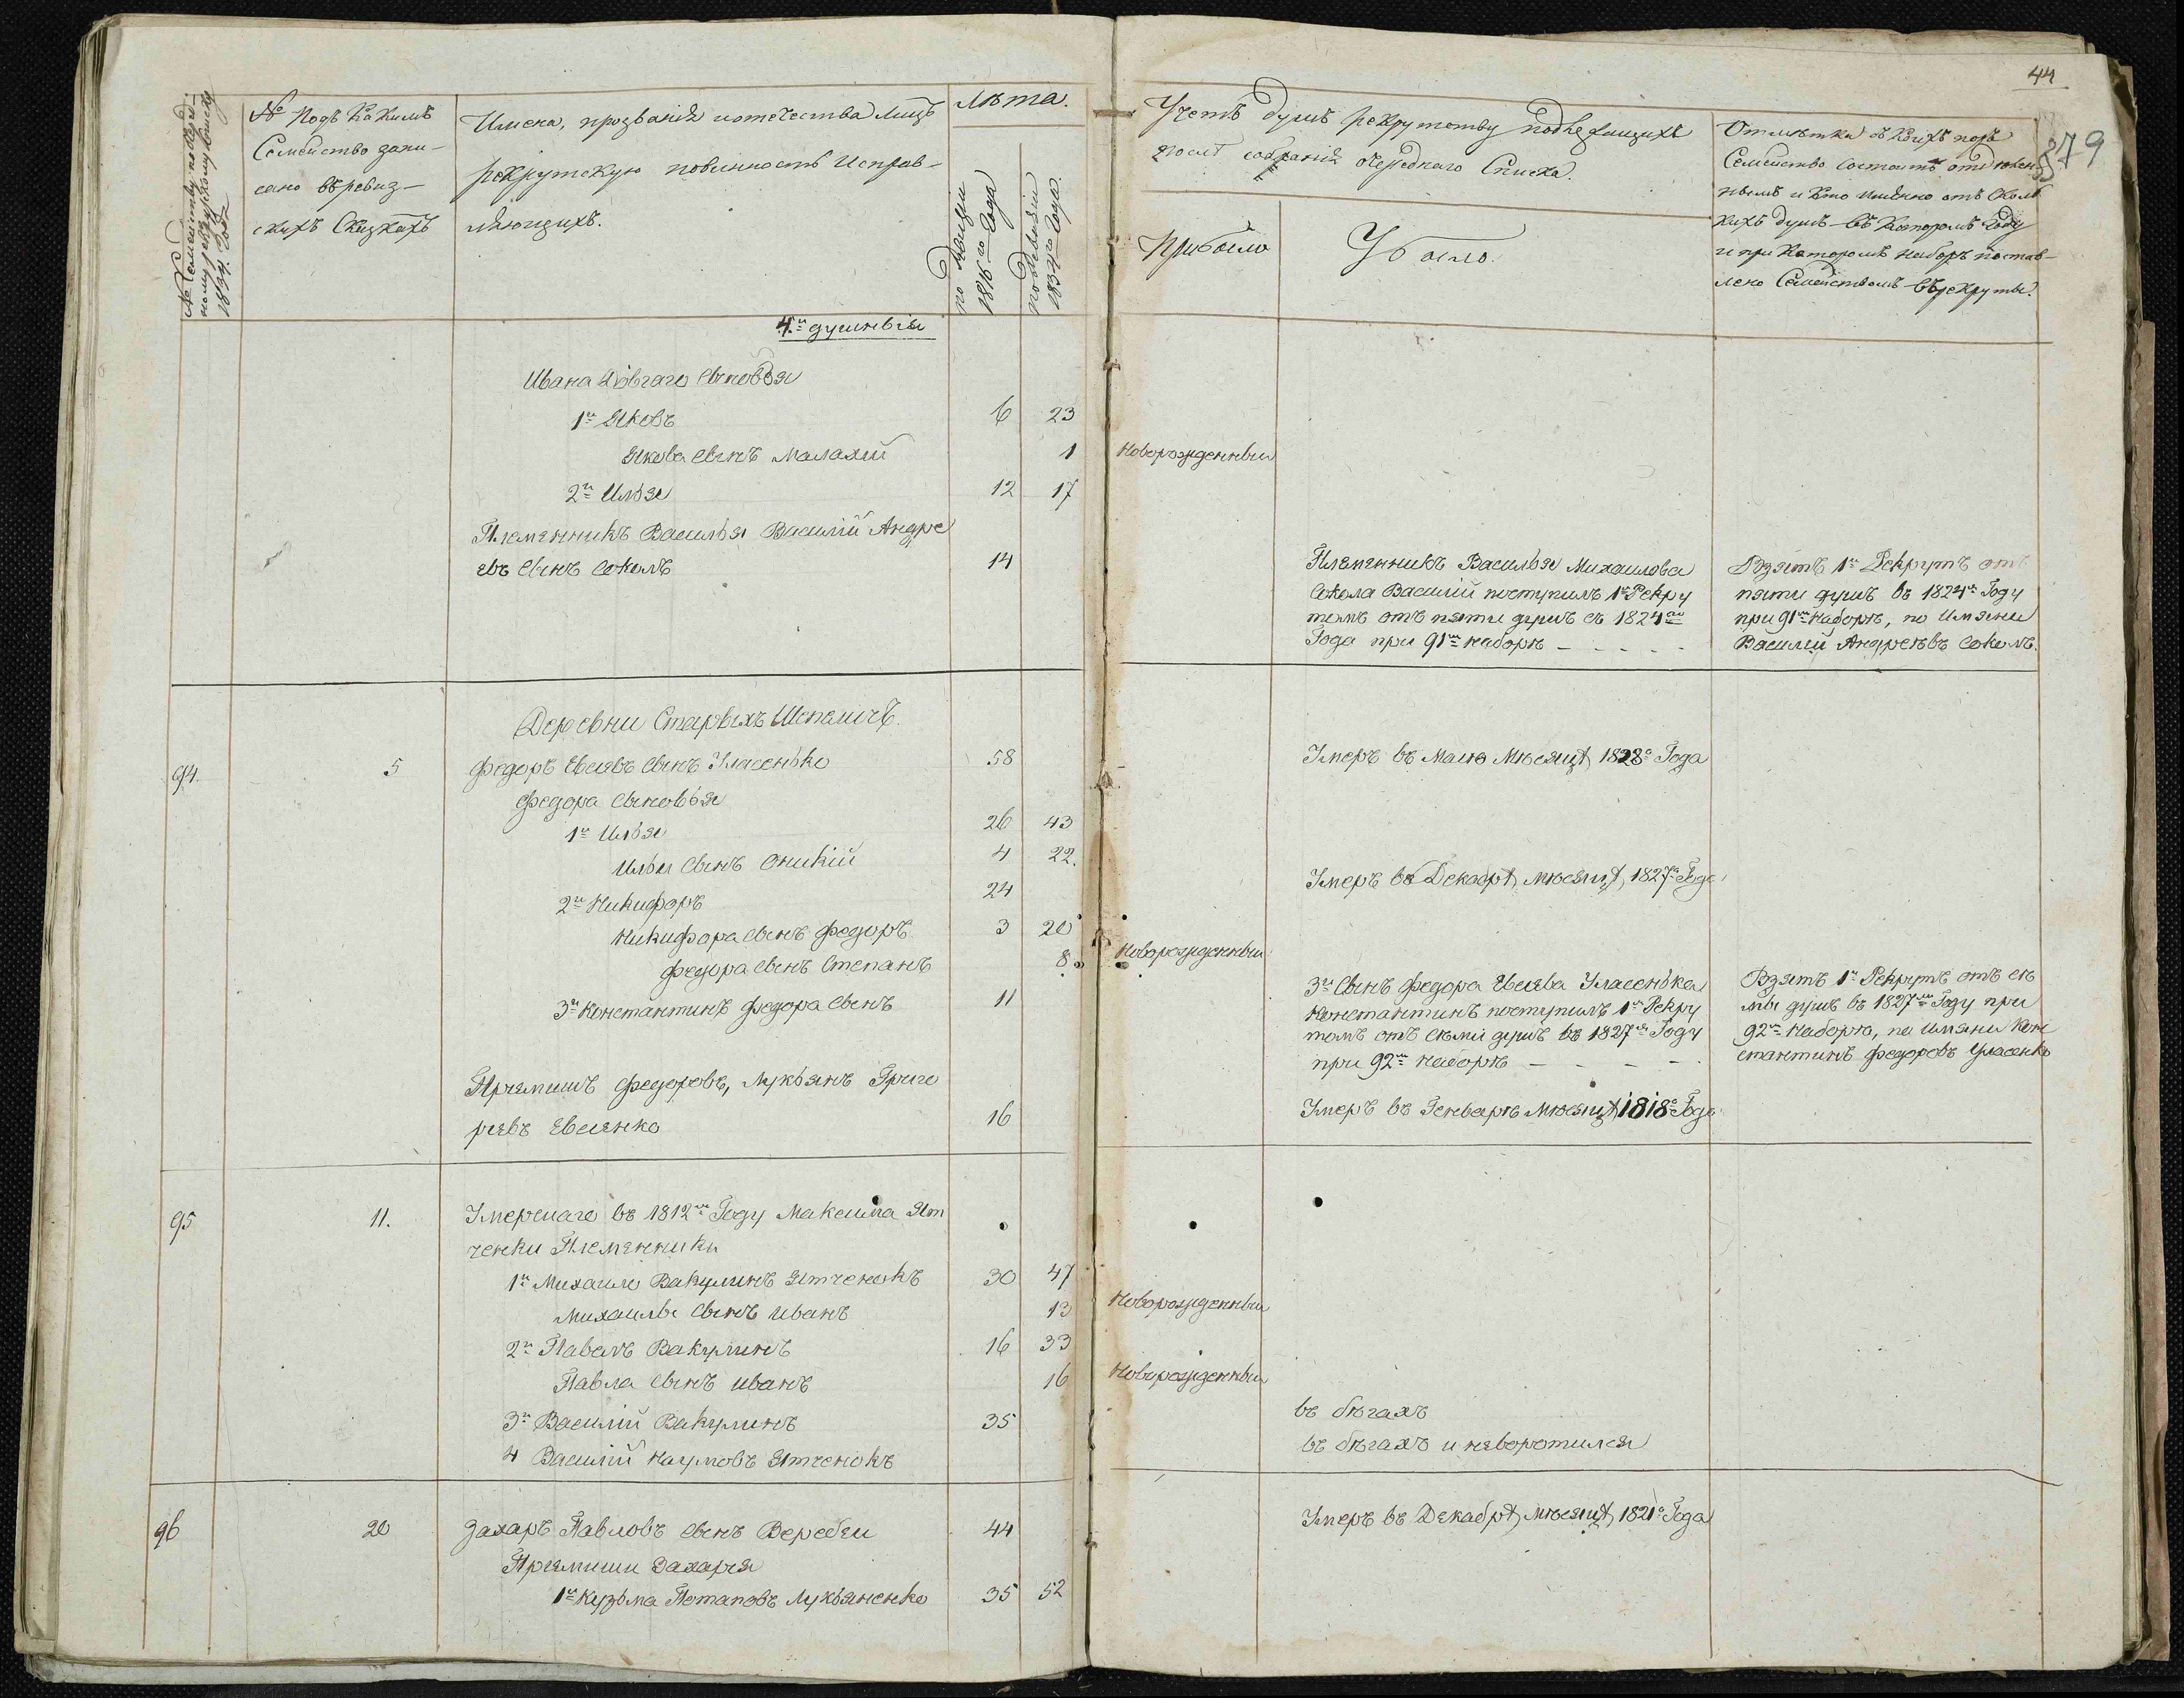 44
379
№ Семейству по очеред-
ному рекрутскому списку
1834. Года
№ Подъ Какимъ
Семейство запи-
сано въ ревиз-
скихъ Сказкахъ
Имена, прозванія и отечества лицъ
рекрутскую повинность Исправ-
ляющихъ.
Лѣта.
по Ревизіи
1816го Года
по Ревизіи
1834го Года.
Учетъ душъ рекрутству подлежащихъ
послѣ собранія очереднаго Списка.
Прибыло
Убыло.
Отмѣтка въ коихъ
Семейство состоитъ
и кто имянно отъ сколь
кихъ душъ въ Которомъ Году
и при Которомъ наборѣ постав-
лено Семействомъ въ рекруты.
4хъ душныя
Ивана Довгаго Сыновья
1й Яковъ 6 23
Якова Сынъ Малахій 1 Новорожденный
2й Илья 12 17
Племянникъ Василья Василій Андре
евъ Сынъ Соколъ 14
Племянникъ Василья Михаилова
Сокола Василій поступилъ 1й Рекру
томъ отъ пяти душъ съ 1824го
Года при 91мъ наборѣ - - - - -
Взятъ 1й Рекрутъ отъ
пяти душъ въ 1824мъ Году
при 91мъ наборѣ, по Имяни
Василій Андреѣвъ Соколъ.
Деревни Старыхъ Шепеличъ.
94. 5 Федоръ Евсѣевъ Сынъ Уласенько 58 Умеръ въ Маію Мѣсяцѣ 1828го Года
Федора Сыновья
1й Илья 26 43
Ильи Сынъ Оникій 4 22.
2й Никифоръ 24 Умеръ въ Декабрѣ мѣсяцѣ 1827го Года
Никифора Сынъ Федоръ 3 20
Федора Сынъ Степанъ 8 Новорожденный
3й Константинъ Федора Сынъ 11
3й Сынъ Федора Евсѣева Уласенька
Константинъ поступилъ 1й Рекру
томъ отъ сѣми душъ въ 1827мъ Году
при 92мъ наборѣ - - - -
Взятъ 1й Рекрутъ отъ сѣ
ми душъ въ 1827мъ Году при
92мъ Наборѣ, по Имяни Кон
стантинъ Федоровъ Уласенко
Пріямишъ Федоровъ, Лукьянъ Григо
рьевъ Евсѣенко 16 Умеръ въ Генварѣ Мѣсяцѣ 1818го Года
95 11. Умершаго въ 1812мъ Году Максима Ят
ченки Племянники
1й Михайло Вакулинъ Ятченокъ 30 47
Михайлы Сынъ Иванъ 13 Новорожденный
2й Павелъ Вакулинъ 16 33
Павла Сынъ Иванъ 16 Новорожденный
3й Василій Вакулинъ 35 въ бѣгахъ
4 Василій Наумовъ Ятченокъ въ бѣгахъ и неворотился
96 20 Захаръ Павловъ Сынъ Веребей 44 Умеръ въ Декабрѣ Мѣсяцѣ 1821го Года
Пріямиши Захарія
1й Кузьма Потаповъ Лукьяненко 35 52